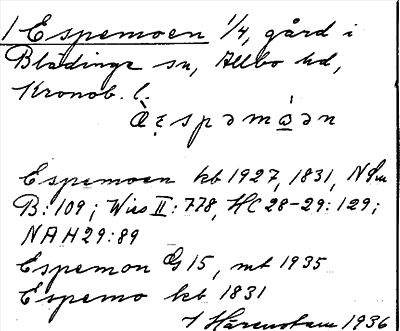 1 Espemoen 1/4, gård i
Blädinge sn, Allbo hd,
Kronob. l.
Espemoen kb 1927, 1831, NSm
B: 109; Wies II: 778, HC 28-29: 129;
NAH 29: 89
Espemon G 15, mt 1935
Espemo kb 1831
I Härenstam 1936